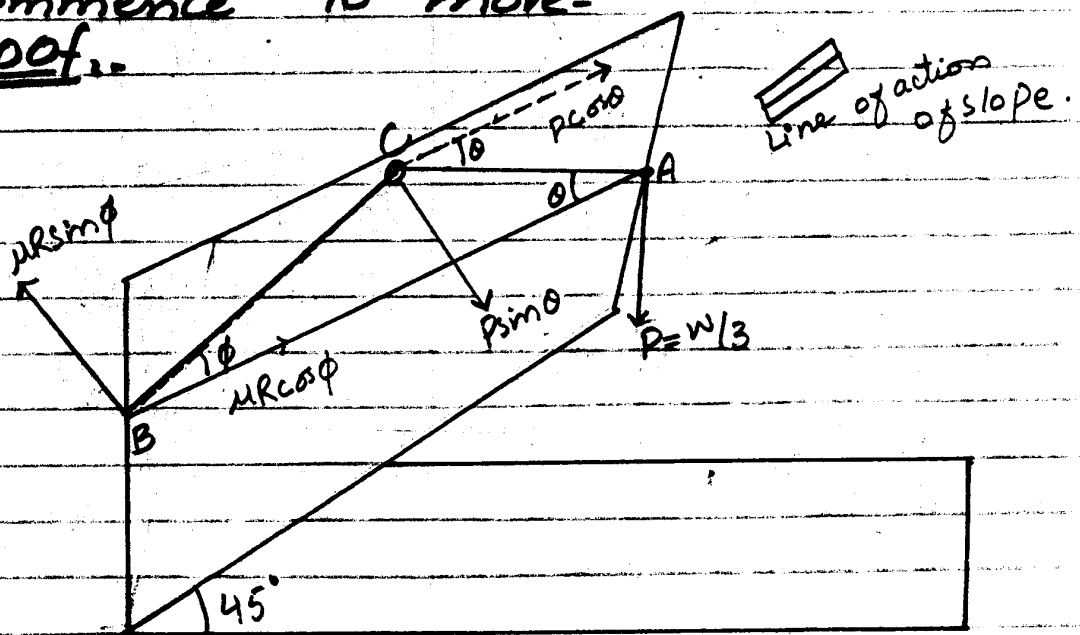 commence to move-
oof:-
Line of action
of slope.
C
θ
Pcosθ
θ
A
μRsinφ
Psinθ
P=W/3
φ
μRcosφ
B
45°